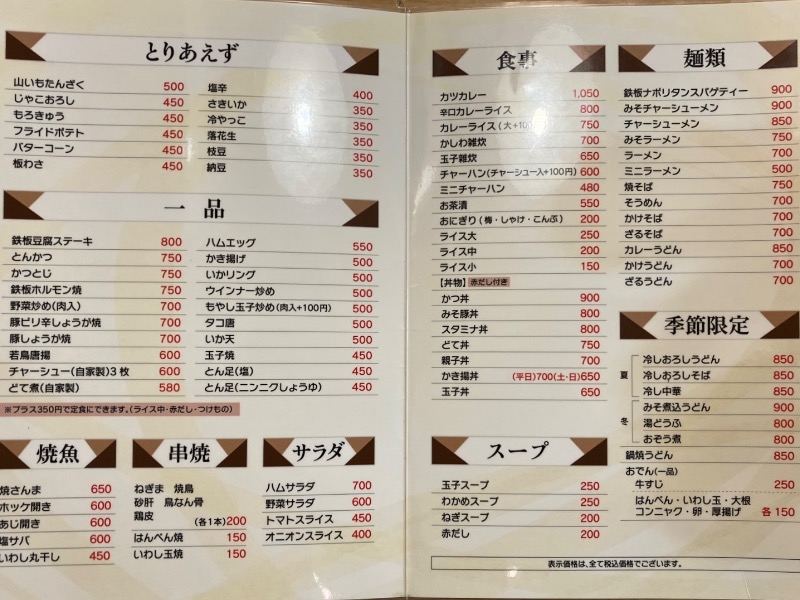 とりあえず
山いもたんざく 500
じゃこおろし 450
もろきゅう 450
フライドポテト 450
バターコーン 450
板わさ 450
塩辛 400
さきいか 350
冷やっこ 350
落花生 350
枝豆 350
納豆 350
一品
鉄板豆腐ステーキ 800
とんかつ 750
かつとじ 750
鉄板ホルモン焼 750
野菜炒め(肉入) 700
豚ピリ辛しょうが焼 700
豚しょうが焼 700
若鳥唐揚 600
チャーシュー(自家製)3枚 600
どて煮(自家製) 580
ハムエッグ 550
かき揚げ 500
いかリング 500
ウインナー炒め 500
もやし玉子炒め(肉入+100円) 500
タコ唐 500
いか天 500
玉子焼 450
とん足(塩) 450
とん足(ニンニクしょうゆ) 450
※プラス350円で定食にできます。(ライス中・赤だし・つけもの)
焼魚
焼さんま 650
ホッケ開き 600
あじ開き 600
塩サバ 600
いわし丸干し 450
串焼
ねぎま 焼鳥
砂肝 鳥なん骨
鶏皮 (各1本)200
はんぺん焼 150
いわし玉焼 150
サラダ
ハムサラダ 700
野菜サラダ 600
トマトスライス 450
オニオンスライス 400
食事
カツカレー 1,050
辛口カレーライス 800
カレーライス(大+100 750
かしわ雑炊 700
玉子雑炊 650
チャーハン(チャーシュー入+100円) 600
ミニチャーハン 480
お茶漬 550
おにぎり(梅・しゃけ・こんぶ) 200
ライス大 250
ライス中 200
ライス小 150
【丼物】赤だし付き
かつ丼 900
みそ豚丼 800
スタミナ丼 800
どて丼 750
親子丼 700
かき揚丼 (平日)700(土・日)650
玉子丼 650
スープ
玉子スープ 250
わかめスープ 250
ねぎスープ 200
赤だし 200
麺類
鉄板ナポリタンスパゲティー 900
みそチャーシューメン 900
チャーシューメン 850
みそラーメン 750
ラーメン 700
ミニラーメン 500
焼そば 750
そうめん 700
かけそば 700
ざるそば 700
カレーうどん 850
かけうどん 700
ざるうどん 700
季節限定
夏
冷しおろしうどん 850
冷しおろしそば 850
冷し中華 850
冬
みそ煮込うどん 900
湯どうふ 800
おぞう煮 800
鍋焼うどん 850
おでん(一品)
牛すじ 250
はんぺん・いわし玉・大根
コンニャク・卵・厚揚げ 各150
表示価格は、全て税込価格でございます。